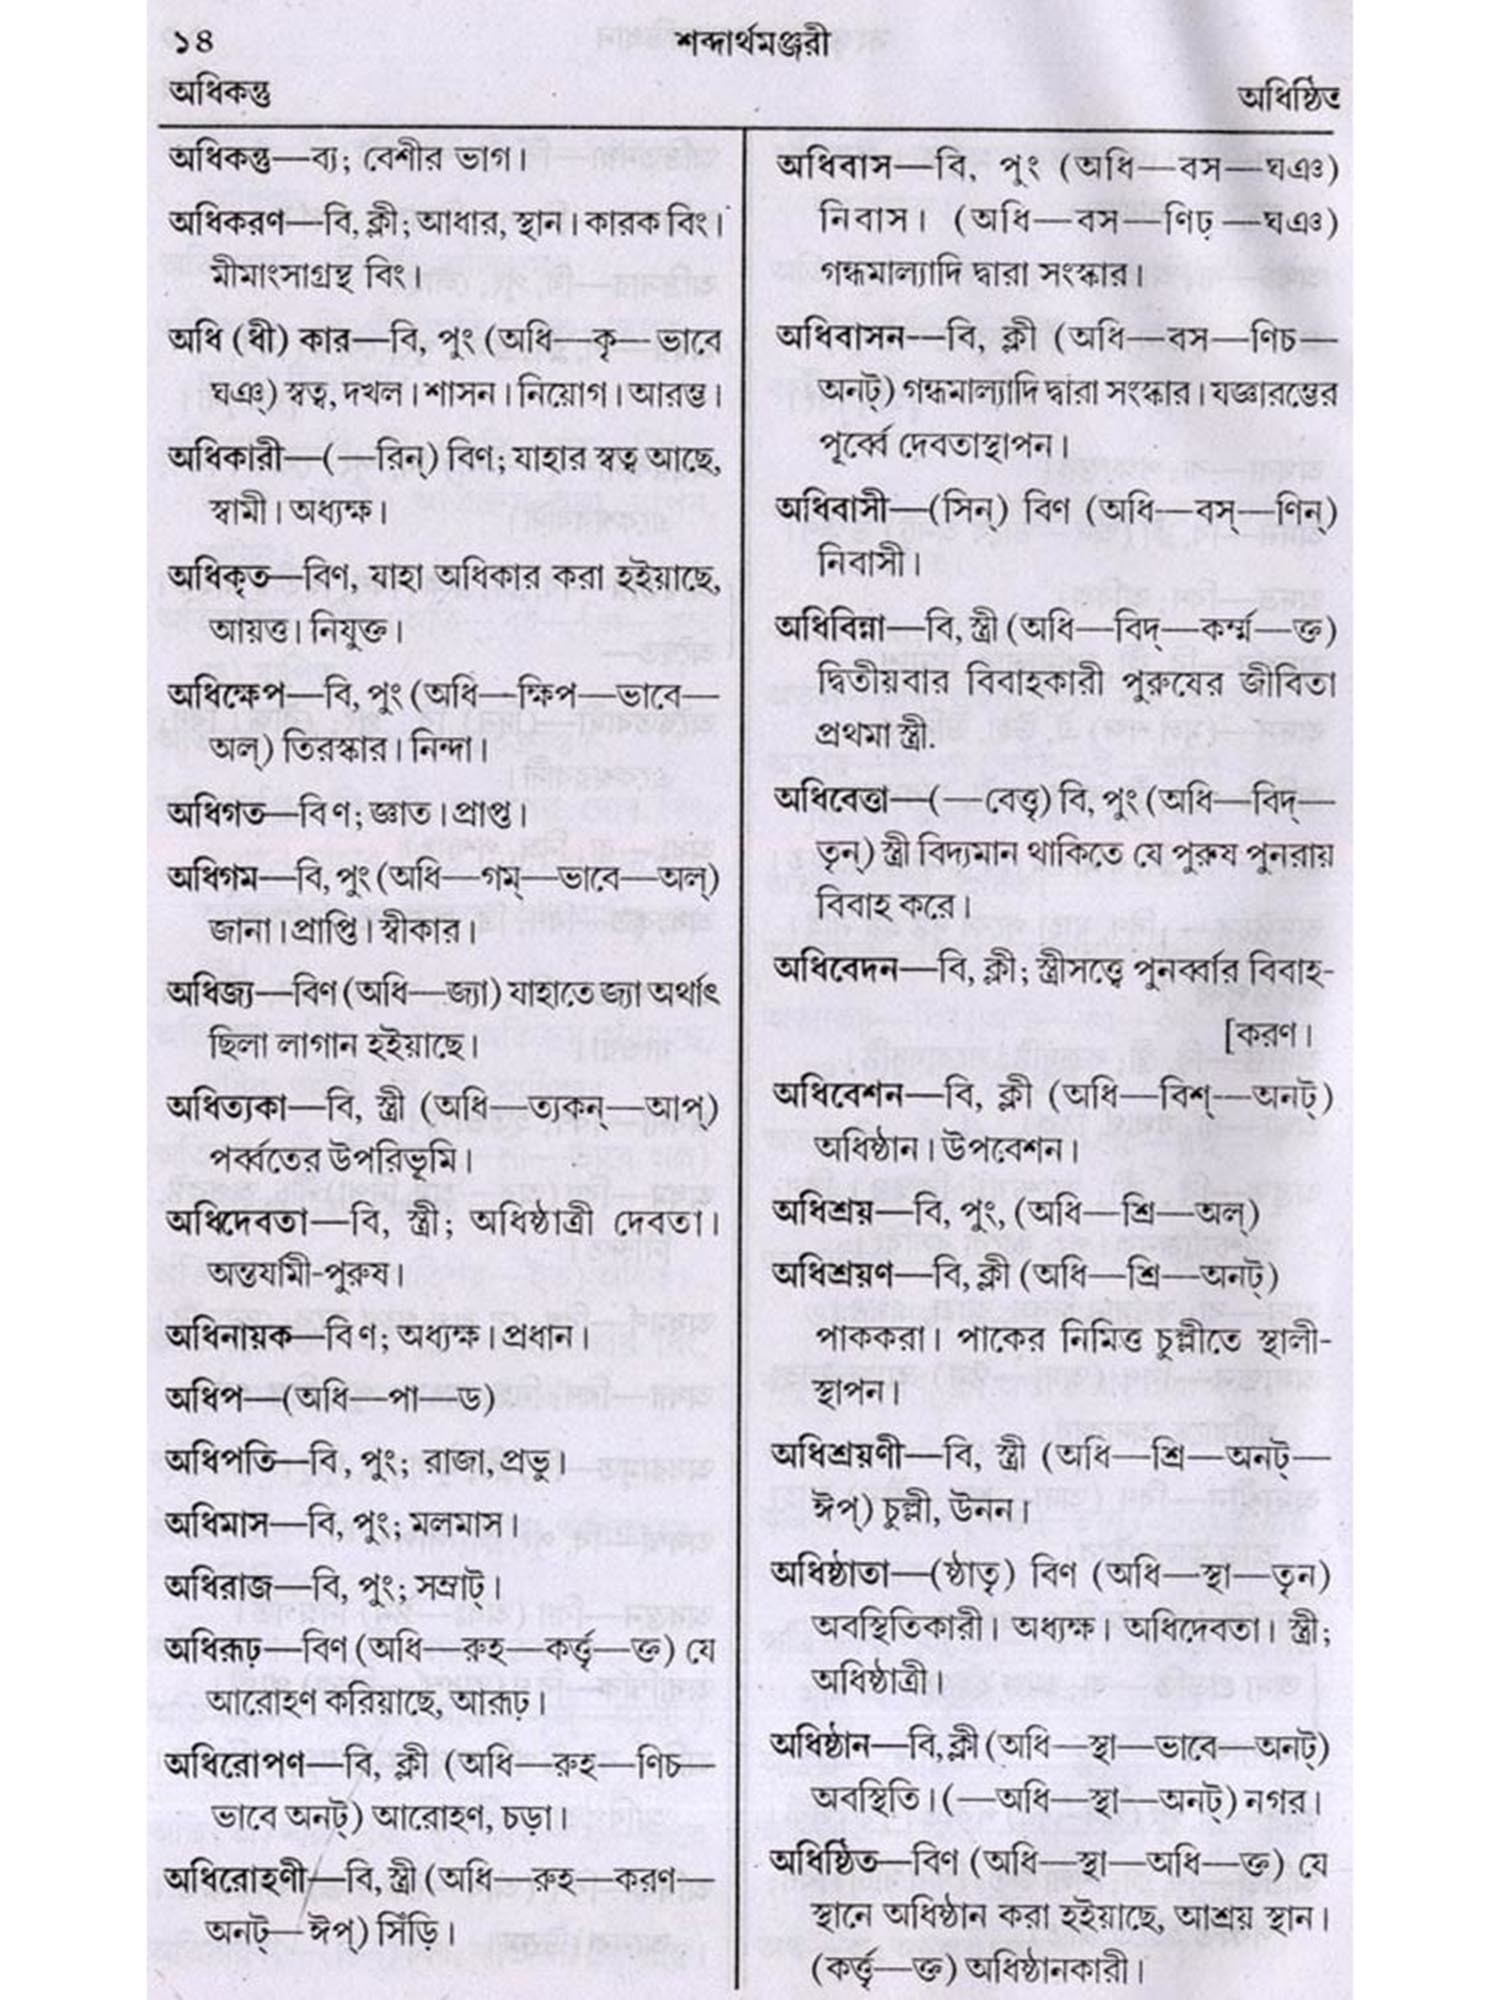 ১৪
শব্দার্থমঞ্জরী
অধিকন্তু
অধিষ্ঠিত
অধিকন্তু—ব্য; বেশীর ভাগ।
অধিকরণ—বি, ক্লী; আধার, স্থান। কারক বিং।
মীমাংসাগ্রন্থ বিং।
অধি (ধী) কার—বি, পুং (অধি—কৃ—ভাবে
ঘঞ্) স্বত্ব, দখল। শাসন। নিয়োগ। আরম্ভ।
অধিকারী—(—রিন্) বিণ; যাহার স্বত্ব আছে,
স্বামী। অধ্যক্ষ।
অধিকৃত—বিণ, যাহা অধিকার করা হইয়াছে,
আয়ত্ত। নিযুক্ত।
অধিক্ষেপ—বি, পুং (অধি—ক্ষিপ—ভাবে—
অল্) তিরস্কার। নিন্দা।
অধিগত—বিণ; জ্ঞাত। প্রাপ্ত।
অধিগম—বি, পুং (অধি—গম্—ভাবে—অল্)
জানা। প্রাপ্তি। স্বীকার।
অধিজ্য—বিণ (অধি—জ্যা) যাহাতে জ্যা অর্থাৎ
ছিলা লাগান হইয়াছে।
অধিত্যকা—বি, স্ত্রী (অধি—ত্যকন্—আপ্)
পর্ব্বতের উপরিভূমি।
অধিদেবতা—বি, স্ত্রী; অধিষ্ঠাত্রী দেবতা।
অন্তর্যামী-পুরুষ।
অধিনায়ক—বিণ; অধ্যক্ষ। প্রধান।
অধিপ—(অধি—পা—ড)
অধিপতি—বি, পুং; রাজা, প্রভু।
অধিমাস—বি, পুং; মলমাস।
অধিরাজ—বি, পুং; সম্রাট্।
অধিরূঢ়—বিণ (অধি—রুহ—কর্ত্তৃ—ক্ত) যে
আরোহণ করিয়াছে, আরূঢ়।
অধিরোপণ—বি, ক্লী (অধি—রুহ—ণিচ—
ভাবে অনট্) আরোহণ, চড়া।
অধিরোহণী—বি, স্ত্রী (অধি—রুহ—করণ—
অনট্—ঈপ্) সিঁড়ি।
অধিবাস—বি, পুং (অধি—বস—ঘঞ)
নিবাস। (অধি—বস—ণিঢ়—ঘঞ)
গন্ধমাল্যাদি দ্বারা সংস্কার।
অধিবাসন—বি, ক্লী (অধি—বস—ণিচ—
অনট্) গন্ধমাল্যাদি দ্বারা সংস্কার। যজ্ঞারম্ভের
পূর্ব্বে দেবতাস্থাপন।
অধিবাসী—(সিন্) বিণ (অধি—বস্—ণিন্)
নিবাসী।
অধিবিন্না—বি, স্ত্রী (অধি—বিদ্—কর্ম্ম—ক্ত)
দ্বিতীয়বার বিবাহকারী পুরুষের জীবিতা
প্রথমা স্ত্রী.
অধিবেত্তা—(—বেত্তৃ) বি, পুং (অধি—বিদ্—
তৃন্) স্ত্রী বিদ্যমান থাকিতে যে পুরুষ পুনরায়
বিবাহ করে।
অধিবেদন—বি, ক্লী; স্ত্রীসত্ত্বে পুনর্ব্বার বিবাহ-
[করণ।
অধিবেশন—বি, ক্লী (অধি—বিশ্—অনট্)
অধিষ্ঠান। উপবেশন।
অধিশ্রয়—বি, পুং, (অধি—শ্রি—অল্)
অধিশ্রয়ণ—বি, ক্লী (অধি—শ্রি—অনট্)
পাককরা। পাকের নিমিত্ত চুল্লীতে স্থালী-
স্থাপন।
অধিশ্রয়ণী—বি, স্ত্রী (অধি—শ্রি—অনট্—
ঈপ্) চুল্লী, উনন।
অধিষ্ঠাতা—(ষ্ঠাতৃ) বিণ (অধি—স্থা—তৃন)
অবস্থিতিকারী। অধ্যক্ষ। অধিদেবতা। স্ত্রী;
অধিষ্ঠাত্রী।
অধিষ্ঠান—বি, ক্লী (অধি—স্থা—ভাবে—অনট্)
অবস্থিতি। (—অধি—স্থা—অনট্) নগর।
অধিষ্ঠিত—বিণ (অধি—স্থা—অধি—ক্ত) যে
স্থানে অধিষ্ঠান করা হইয়াছে, আশ্রয় স্থান।
(কর্ত্তৃ—ক্ত) অধিষ্ঠানকারী।